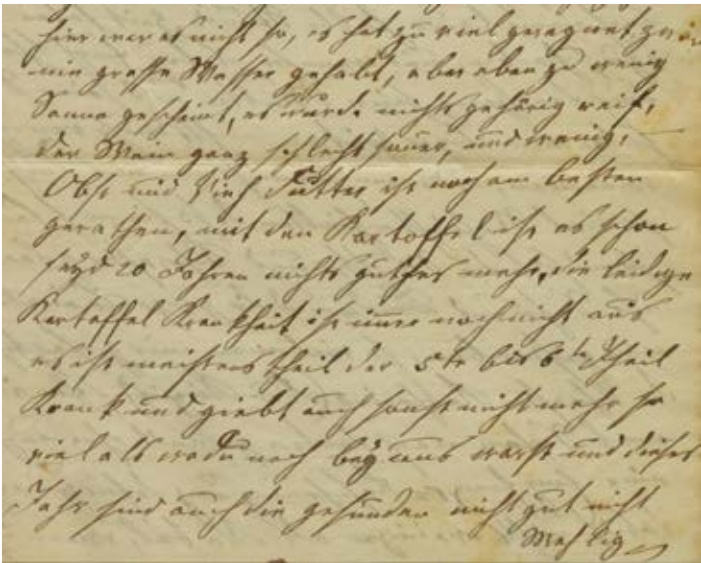 hier war es nicht so, es hat zu viel geregnet zwar
nie grosse Wasser gehabt, aber eben zu wenig
Sonne gescheint, es wurde nichts gehörig reif,
der Wein ganz schlecht sauer, und wenig,
Obst und Vieh Futter ist noch am besten
gerathen, mit den Kartoffel ist es schon
seyd 20 Jahren nichts gutes mehr, die leidige
Kartoffel Krankheit ist immer noch nicht aus
es ist meistens theil der 5te bis 6te Theil
Krank und giebt auch sonst nicht mehr so
viel als wo du noch bey uns warst und dieses
Jahr sind auch die gesunden nicht gut nicht
Mehlig